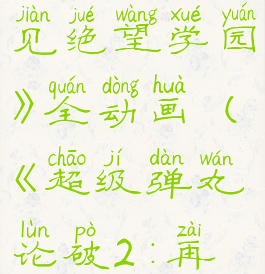 jiàn jué wàng xué yuán
见绝望学园
quán dòng huà
》全动画（
chāo jí dàn wán
《超级弹丸
lùn pò zài
论破2：再